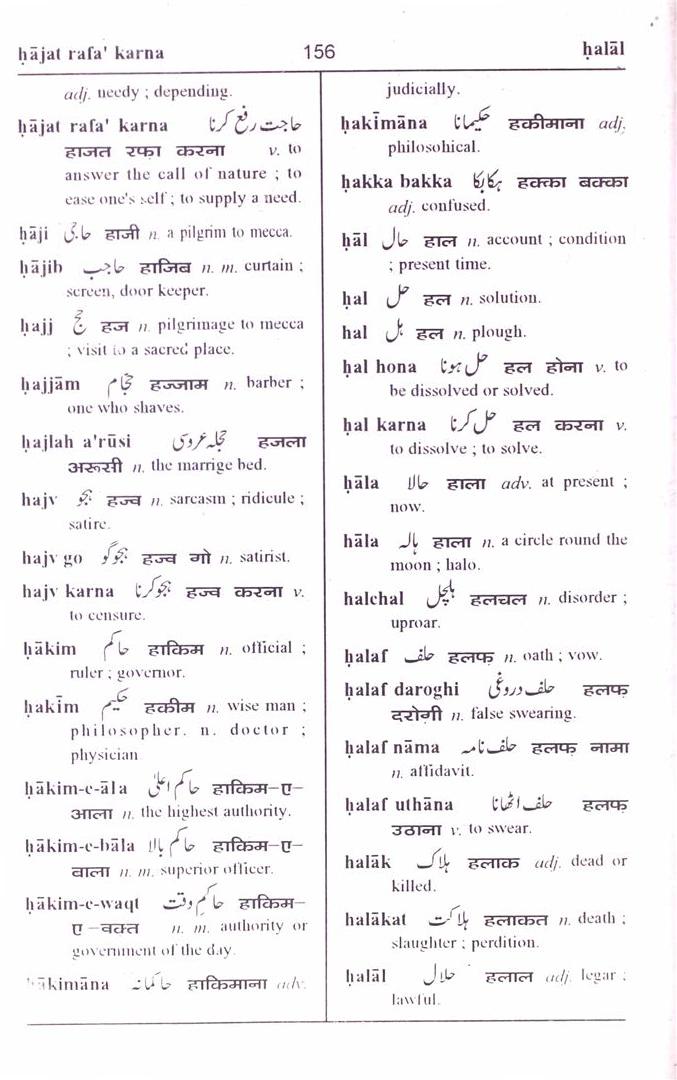 ḥājat rafa' karna 156 ḥalāl
adj. needy ; depending.
ḥājat rafa' karna حاجت رفع کرنا
हाजत रफ़ा करना v. to
answer the call of nature ; to
ease one's self ; to supply a need.
ḥāji حاجی हाजी n. a pilgrim to mecca.
ḥājib حاجب हाजिब n. m. curtain ;
screen, door keeper.
ḥajj حج हज n. pilgrimage to mecca
; visit to a sacred place.
ḥajjām حجام हज्जाम n. barber ;
one who shaves.
ḥajlah a'rūsi حجلہ عروسی हजला
अरूसी n. the marrige bed.
hajv ہجو हज्व n. sarcasm ; ridicule ;
satire.
hajv go ہجو گو हज्व गो n. satirist.
hajv karna ہجو کرنا हज्व करना v.
to censure.
ḥākim حاکم हाकिम n. official ;
ruler ; governor.
ḥakīm حکیم हकीम n. wise man ;
philosopher. n. doctor ;
physician
ḥākim-e-āla حاکم اعلیٰ हाकिम-ए-
आला n. the highest authority.
ḥākim-e-bāla حاکم بالا हाकिम-ए-
वाला n. m. superior officer.
ḥākim-e-waqt حاکم وقت हाकिम-
ए-वक्त n. m. authority or
government of the day.
ḥākimāna حاکمانہ हाकिमाना adv.
judicially.
ḥakīmāna حکیمانا हकीमाना adj.
philosohical.
ḥakka bakka ہکا بکا हक्का बक्का
adj. confused.
ḥāl حال हाल n. account ; condition
; present time.
ḥal حل हल n. solution.
hal ہل हल n. plough.
ḥal hona حل ہونا हल होना v. to
be dissolved or solved.
ḥal karna حل کرنا हल करना v.
to dissolve ; to solve.
ḥāla حالا हाला adv. at present ;
now.
hāla ہالہ हाला n. a circle round the
moon ; halo.
halchal ہلچل हलचल n. disorder ;
uproar.
ḥalaf حلف हलफ़ n. oath ; vow.
ḥalaf daroghi حلف دروغی हलफ़
दरोग़ी n. false swearing.
ḥalaf nāma حلف نامہ हलफ़ नामा
n. affidavit.
ḥalaf uthāna حلف اٹھانا हलफ़
उठाना v. to swear.
halāk ہلاک हलाक adj. dead or
killed.
halākat ہلاکت हलाकत n. death ;
slaughter ; perdition.
ḥalāl حلال हलाल adj. legar ;
lawful.